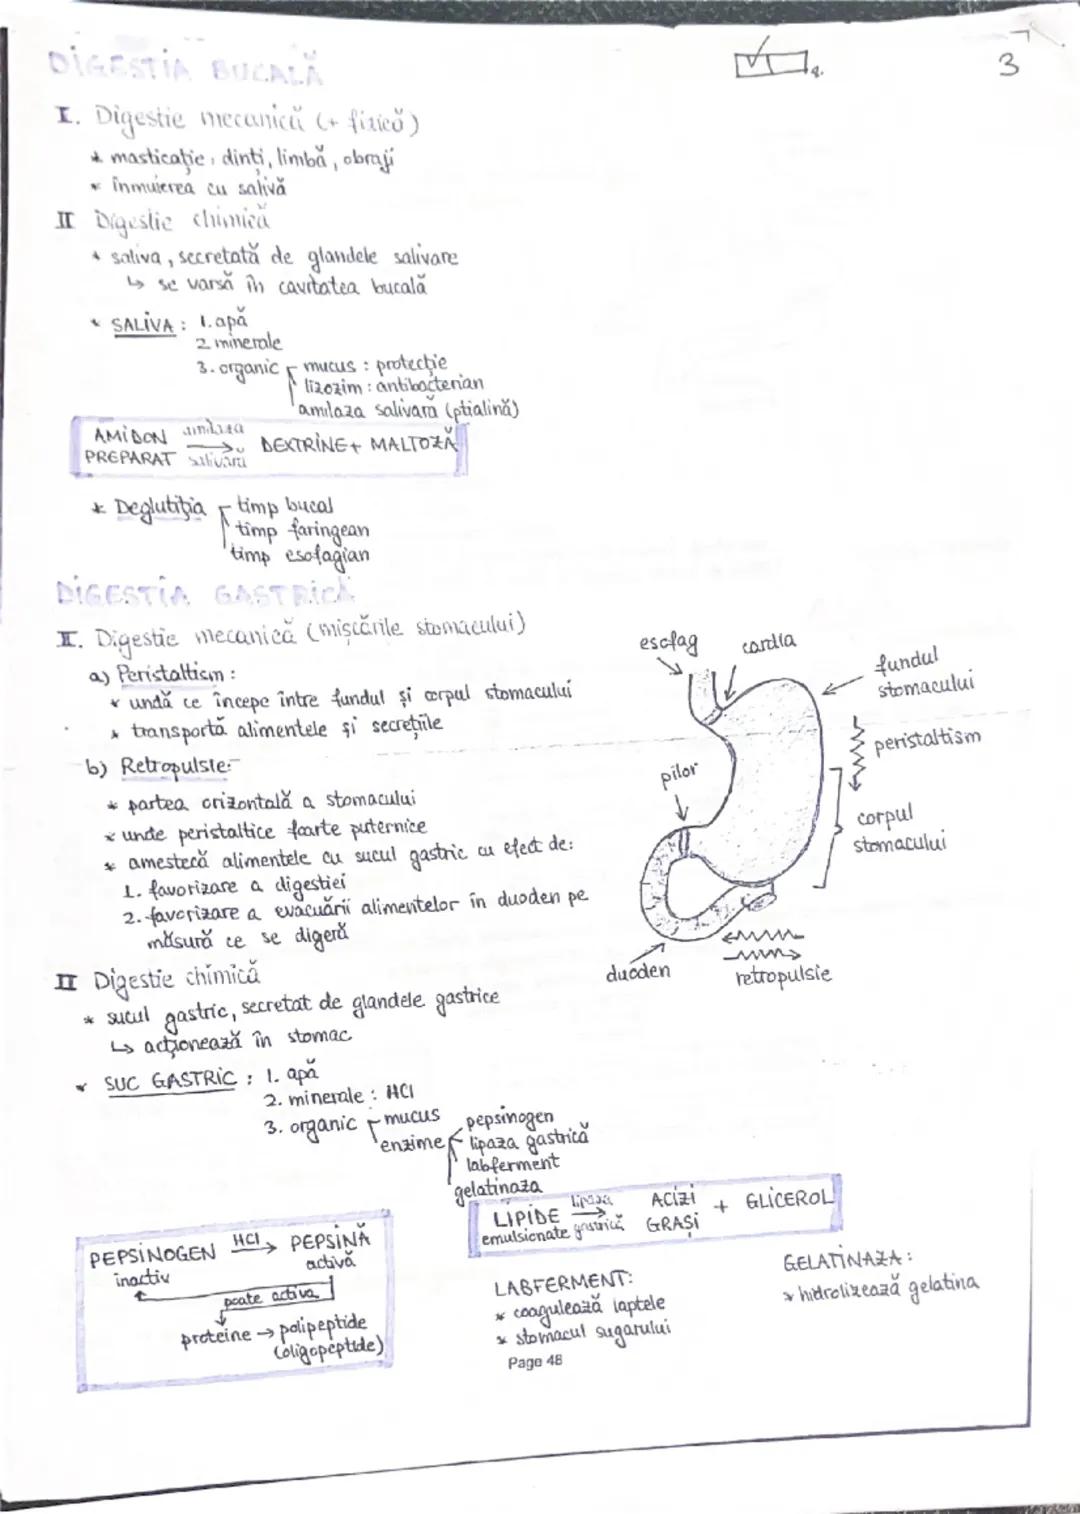 3
DIGESTIA BUCALĂ
I. Digestie mecanică (+ fizică)
* masticație: dinți, limbă, obraji
* înmuierea cu salivă
II Digestie chimică
* saliva, secretată de glandele salivare
↳ se varsă în cavitatea bucală
* SALIVA: 1. apă
2. minerale
3. organic mucus: protecție
lizozim: antibacterian
amilaza salivară (ptialină)
AMIDON PREPARAT amilaza salivară → DEXTRINE + MALTOZĂ
* Deglutiția timp bucal
timp faringean
timp esofagian
DIGESTIA GASTRICĂ
I. Digestie mecanică (mișcările stomacului)
a) Peristaltism:
* undă ce începe între fundul și corpul stomacului
* transportă alimentele și secrețiile
b) Retropulsie:
* partea orizontală a stomacului
* unde peristaltice foarte puternice
* amestecă alimentele cu sucul gastric cu efect de:
1. favorizare a digestiei
2. favorizare a evacuării alimentelor în duoden pe
măsură ce se digeră
esofag
cardia
fundul
stomacului
peristaltism
pilor
corpul
stomacului
duoden
retropulsie
II Digestie chimică
* sucul gastric, secretat de glandele gastrice
↳ acționează în stomac
* SUC GASTRIC: 1. apă
2. minerale: HCl
3. organic mucus
enzime pepsinogen
lipaza gastrică
labferment
gelatinaza
LIPIDE emulsionate lipaza gastrică → ACIZI GRAȘI + GLICEROL
PEPSINOGEN HCl → PEPSINĂ
inactiv activă
poate activa
proteine → polipeptide
(oligopeptide)
LABFERMENT:
* coagulează laptele
* stomacul sugarului
GELATINAZA:
* hidrolizează gelatina
Page 48